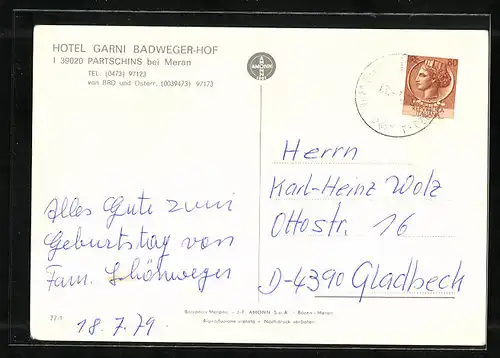 HOTEL GARNI BADWEGER-HOF
I 39020 PARTSCHINS bei Meran
TEL. (0473) 97123
von BRD und Österr. (0039473) 97173
AMONN
80
Herrn
Karl-Heinz Wolz
Ottostr. 16
D-4390 Gladbeck
Alles Gute zum
Geburtstag von
Fam. Schönweger
77-1
18.7.79
J.F. AMONN S.p.A. - Bozen-Meran
Riproduzione vietata - Nachdruck verboten